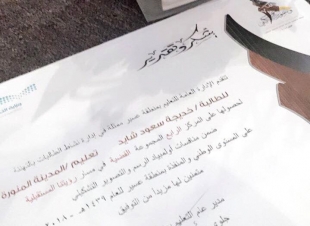 شكر وتقدير
تتقدم الإدارة العامة للتعليم بمنطقة عسير ممثلة في إدارة نشاط الطالبات بالتهنئة
للطالبة / خديجة سعود شايد تعليم / المدينة المنورة
لحصولها على المركز الرابع المجموعة الفضية في مسار رؤيتنا المستقبلية
ضمن منافسات أولمبياد الرسم والتصوير التشكيلي
على المستوى الوطني والمنفذة بمنطقة عسير للعام ١٤٣٩هـ - ٢٠١٨
متمنين لها مزيداً من التوفيق
مدير عام التعليم
جلوي